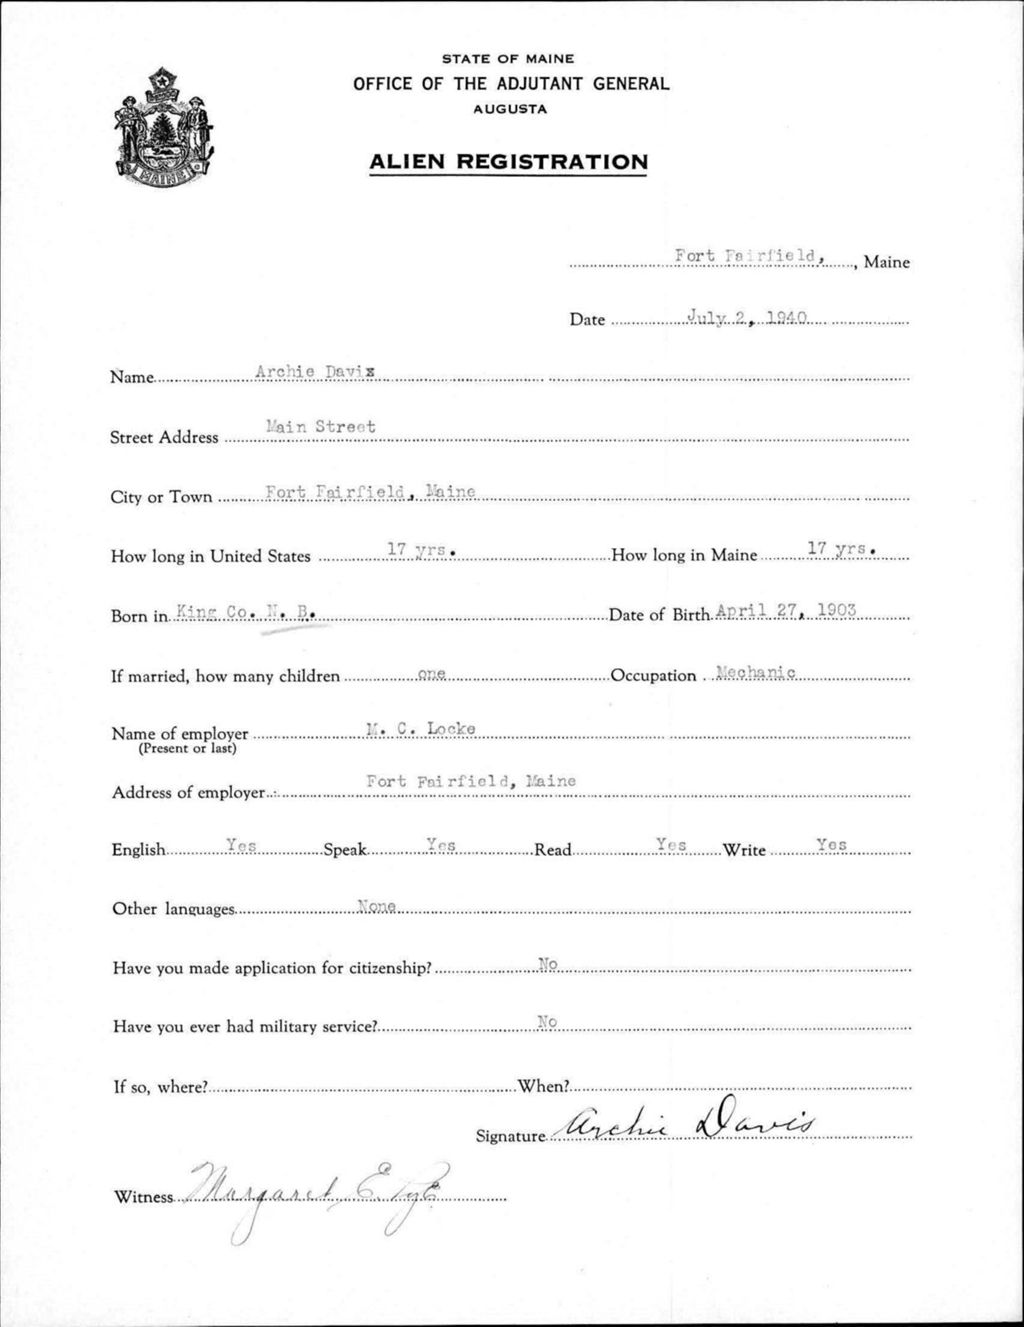 STATE OF MAINE
OFFICE OF THE ADJUTANT GENERAL
AUGUSTA
MAINE
ALIEN REGISTRATION
Fort Fairfield, , Maine
Date July 2, 1940
Name Archie Davis
Street Address Main Street
City or Town Fort Fairfield, Maine
How long in United States 17 yrs. How long in Maine 17 yrs.
Born in King Co. N. B. Date of Birth April 27, 1903
If married, how many children one Occupation Mechanic
Name of employer M. C. Locke
(Present or last)
Address of employer Fort Fairfield, Maine
English Yes Speak Yes Read Yes Write Yes
Other languages None
Have you made application for citizenship? No
Have you ever had military service? No
If so, where? When?
Signature Archie Davis
Witness Margaret E. Pye